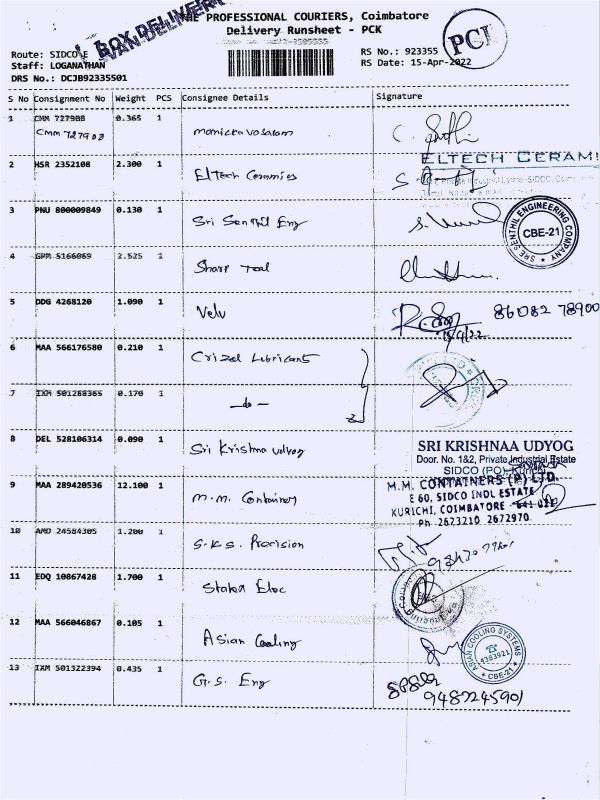 THE PROFESSIONAL COURIERS, Coimbatore
Delivery Runsheet - PCK
PCI
Route: SIDCO E
Staff: LOGANATHAN
DRS No.: DCJB92335501
RS No.: 923355
RS Date: 15-Apr-2022
S No Consignment No Weight PCS Consignee Details Signature
1 CMM 727908 0.365 1
Cmm 727908 manicka vasakam
2 HSR 2352108 2.300 1 Eltech Ceramics
ELTECH CERAMI
3 PNU 800009849 0.130 1 Sri Senthil Eng
SRE SENTHIL ENGINEERING COMPANY CBE-21
4 GPM 5166069 2.525 1 Sharp Tool
5 DDG 4268120 1.090 1 Velu 86082 78900
15/4/22
6 MAA 566176580 0.210 1 Crizal Lubricants
7 IXM 501288365 0.170 1 -do-
8 DEL 528106314 0.090 1 Sri Krishna udyog
SRI KRISHNAA UDYOG
Door. No. 1&2, Private Industrial Estate
SIDCO (PO),
9 MAA 289420536 12.100 1 M.M. Containers
M.M. CONTAINERS (P) LTD.
E 60, SIDCO INDL ESTATE
KURICHI, COIMBATORE - 641 021
Ph 2673210 2672970
10 AMD 24584305 1.200 1 S.K.S. Precision
11 EDQ 10867428 1.700 1
12 MAA 566046867 0.105 1 Asian Cooling
ASIAN COOLING SYSTEMS 4383921 CBE-21
13 IXM 501322394 0.435 1 G.S. Eng
9487245901